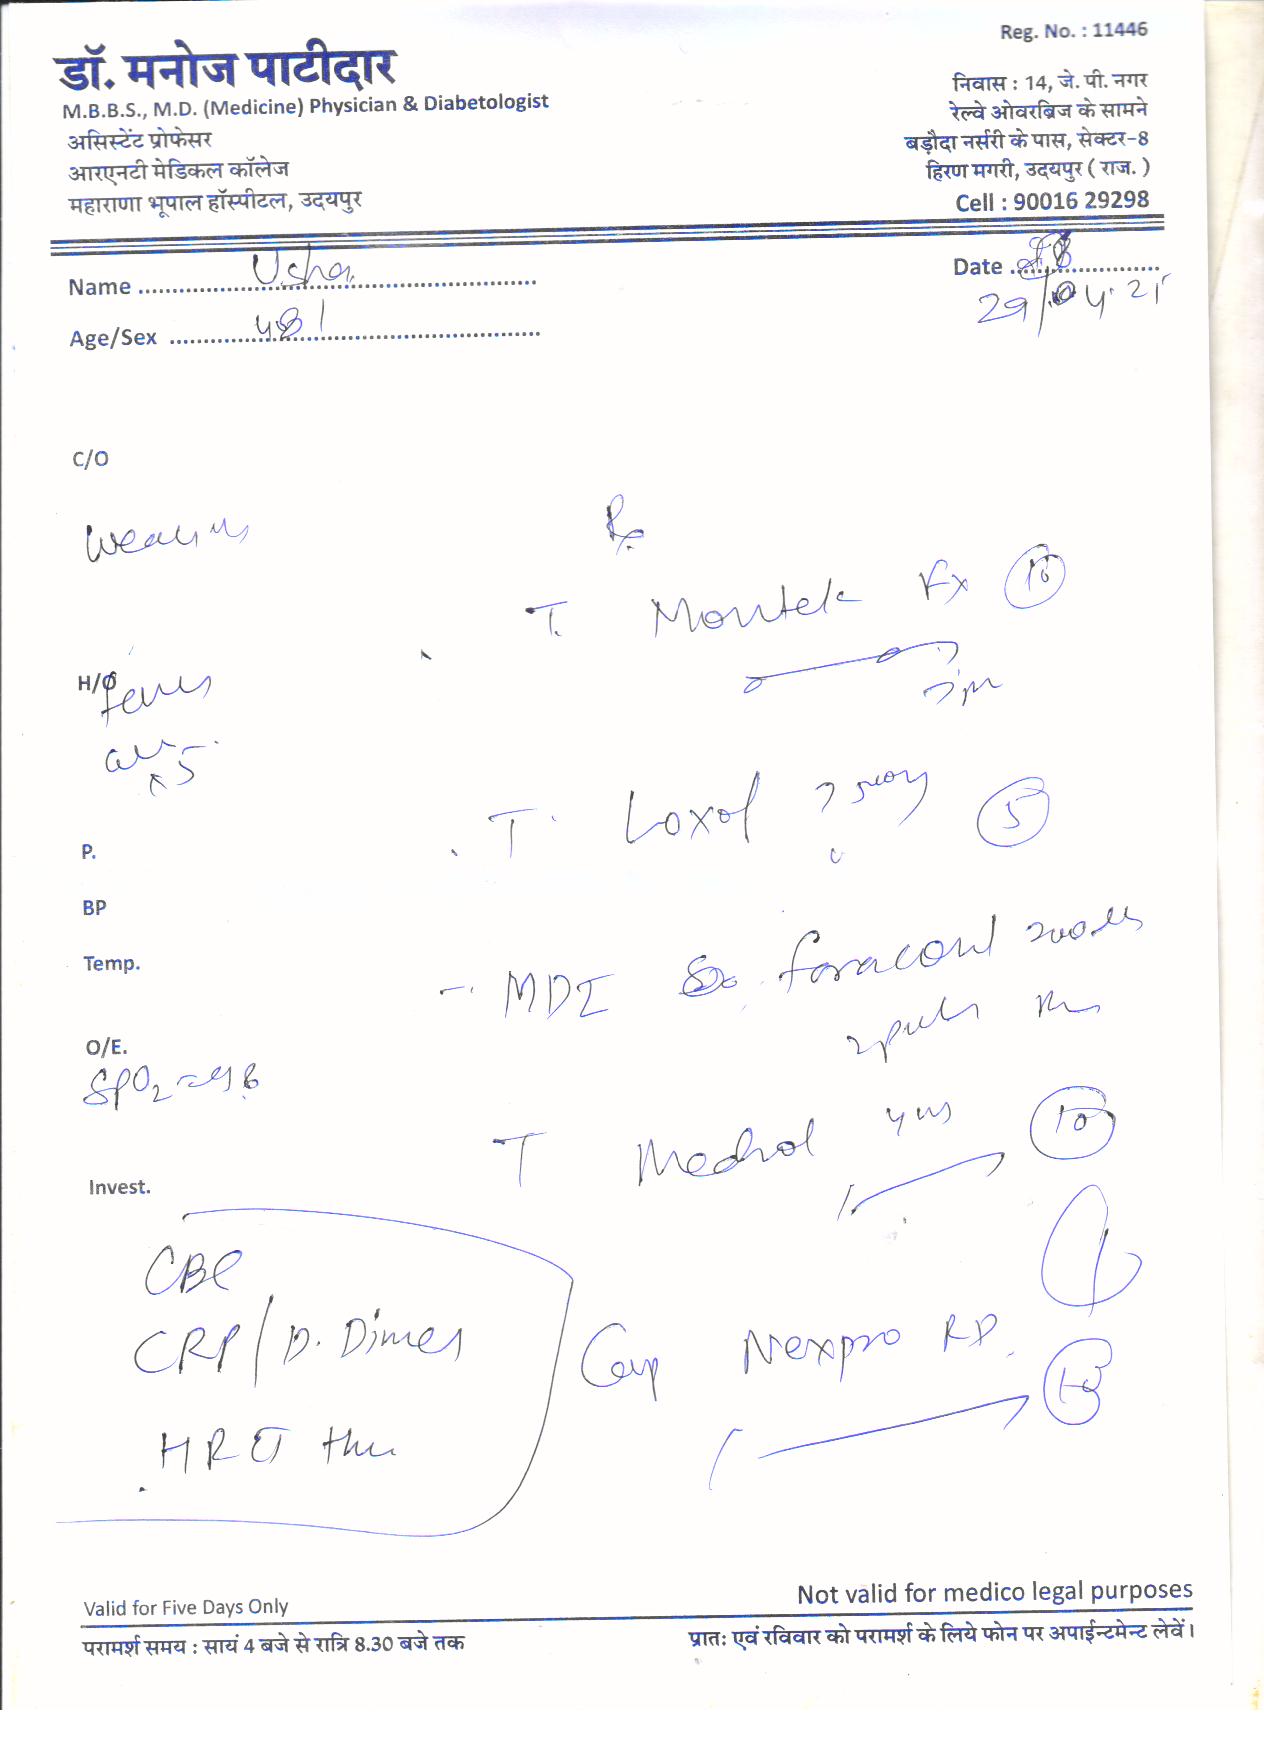 Reg. No. : 11446
डॉ. मनोज पाटीदार
M.B.B.S., M.D. (Medicine) Physician & Diabetologist
असिस्टेंट प्रोफेसर
आरएनटी मेडिकल कॉलेज
महाराणा भूपाल हॉस्पीटल, उदयपुर
निवास : 14, जे. पी. नगर
रेल्वे ओवरब्रिज के सामने
बड़ौदा नर्सरी के पास, सेक्टर-8
हिरण मगरी, उदयपुर ( राज. )
Cell : 90016 29298
Name Usha
Date
29/04.21
Age/Sex 48 /
C/O
Rx
T. Montek Fx 10
H/O
T. Loxof 5
P.
BP
Temp.
- MDI foracort 200
O/E.
SPO2
T Medrol 10
Invest.
CBC
CRP/D. Dimer
Cap Nexpro RD 10
HRCT
Valid for Five Days Only
Not valid for medico legal purposes
परामर्श समय : सायं 4 बजे से रात्रि 8.30 बजे तक
प्रातः एवं रविवार को परामर्श के लिये फोन पर अपाईन्टमेन्ट लेवें।